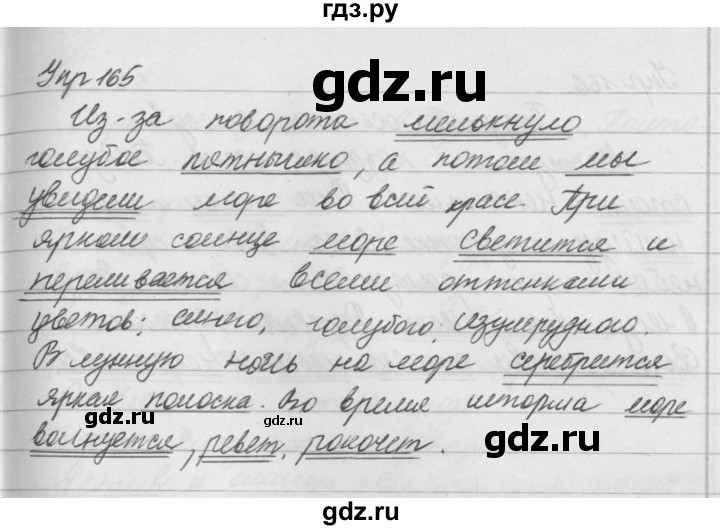 гдз.ру
gdz.ru
Упр 165
Из-за поворота мелькнуло
голубое пятнышко, а потом мы
увидели море во всей красе. При
ярком солнце море светится и
переливается всеми оттенками
цветов: синего, голубого, изумрудного.
В лунную ночь на море серебрится
яркая полоска. Во время шторма море
волнуется, ревет, рокочет.
gdz.ru
gdz.ru
gdz.ru
gdz.ru
gdz.ru